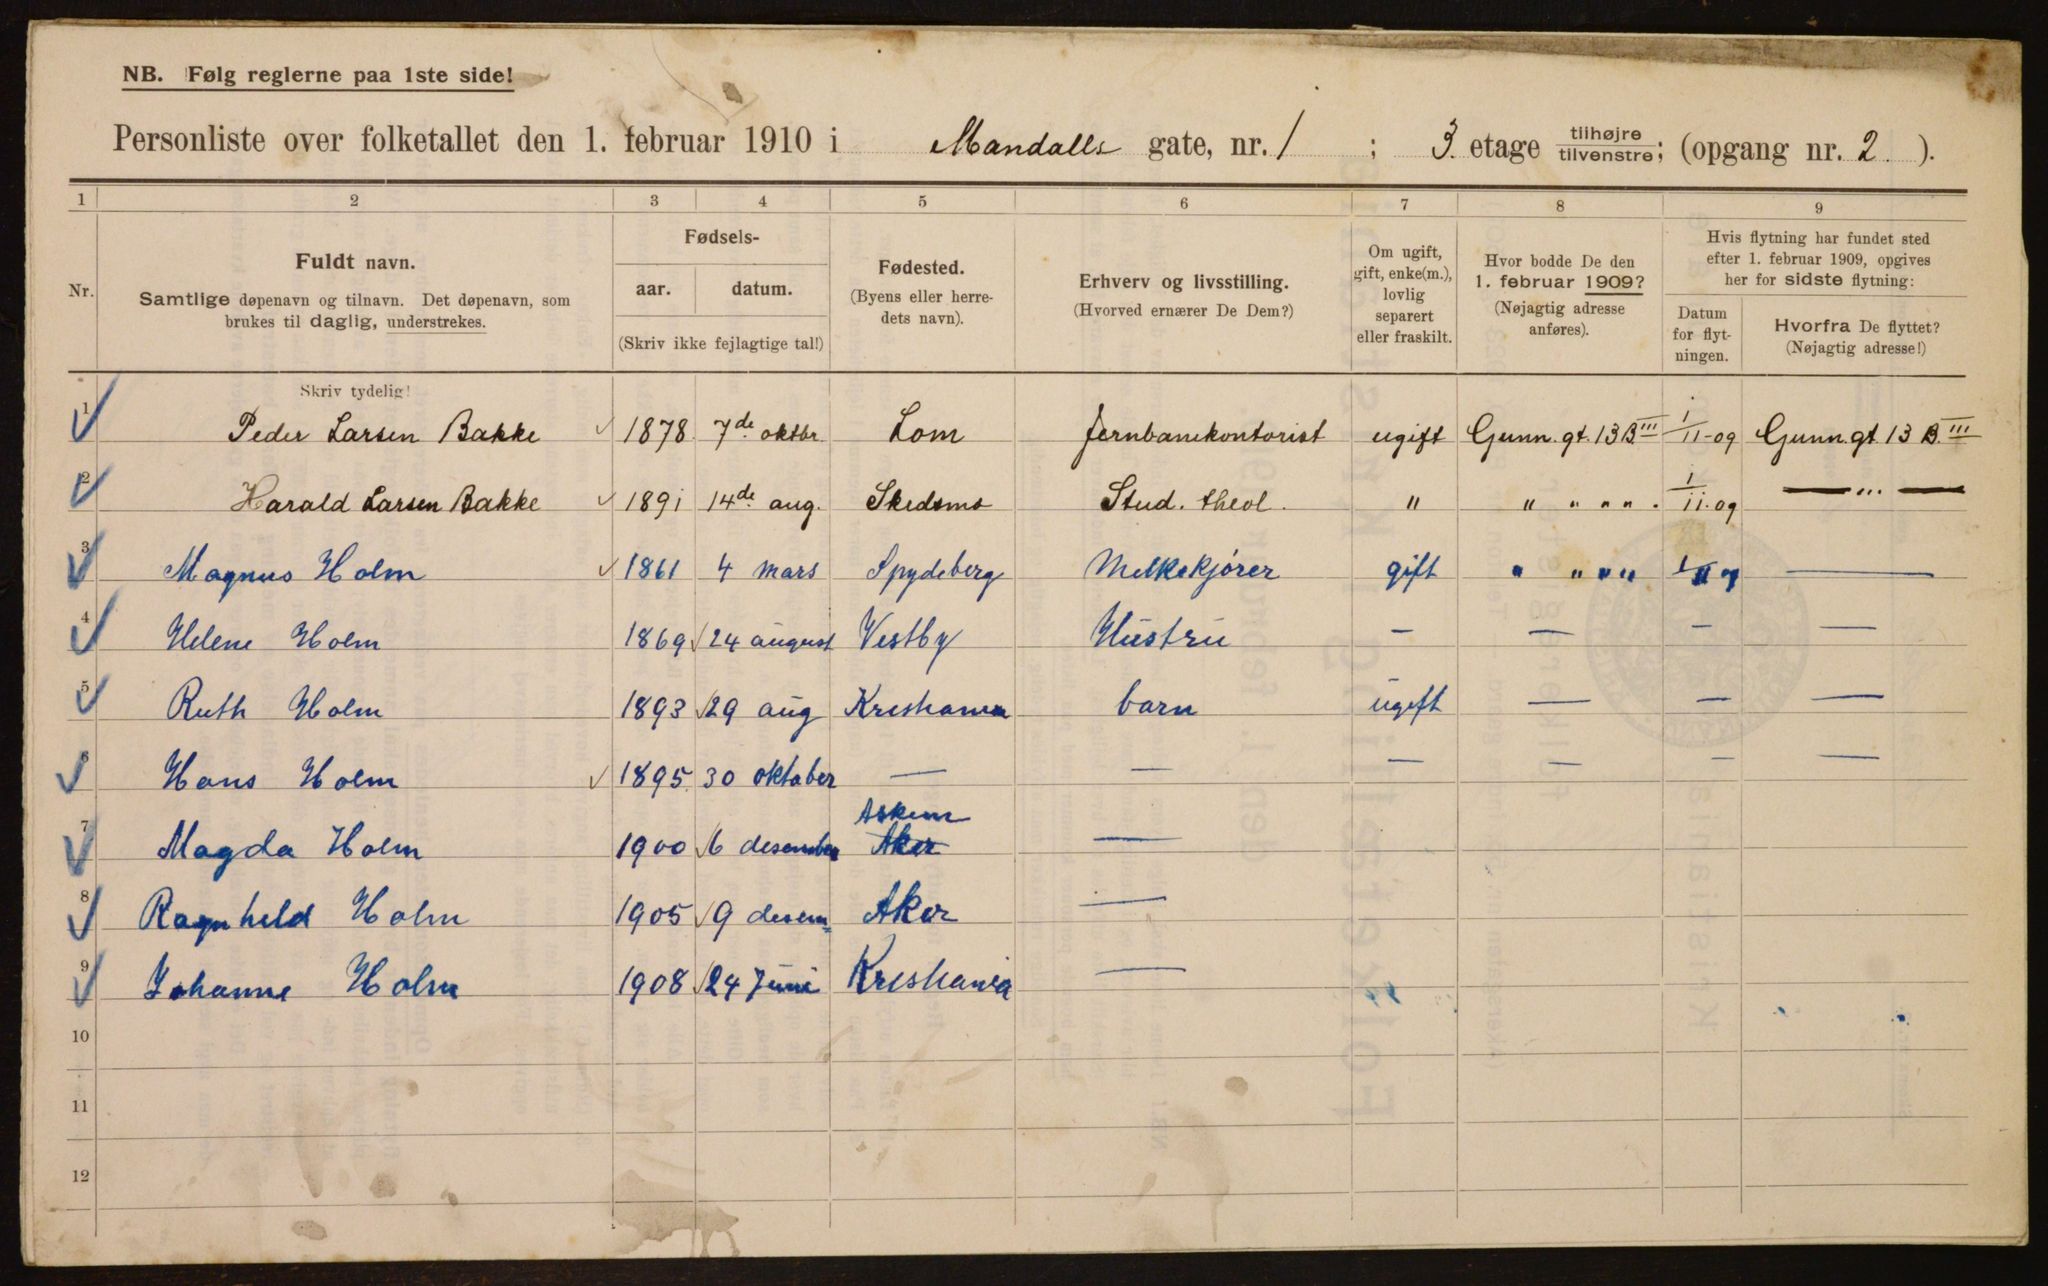 NB. Følg reglerne paa 1ste side!
Personliste over folketallet den 1. februar 1910 i Mandalls gate, nr. 1 ; 3. etage tilhøjre/tilvenstre; (opgang nr. 2 ).
1 2 3 4 5 6 7 8 9
Nr. Fuldt navn. Samtlige døpenavn og tilnavn. Det døpenavn, som brukes til daglig, understrekes.
Fødsels- aar. datum. (Skriv ikke fejlagtige tal!)
Fødested. (Byens eller herredets navn).
Erhverv og livsstilling. (Hvorved ernærer De Dem?)
Om ugift, gift, enke(m.), lovlig separert eller fraskilt.
Hvor bodde De den 1. februar 1909? (Nøjagtig adresse anføres).
Hvis flytning har fundet sted efter 1. februar 1909, opgives her for sidste flytning:
Datum for flytningen. Hvorfra De flyttet? (Nøjagtig adresse!)
Skriv tydelig!
1 Peder Larsen Bakke 1878 7de oktbr Lom Jernbanekontorist ugift Gunn. gt. 13 B III 1/11-09 Gunn. gt. 13 B. III
2 Harald Larsen Bakke 1891 14de aug. Skedsmo Stud. theol. " " " " " . 1/11.09 — " —
3 Magnus Holm 1861 4 mars Spydeberg Melkekjører gift " " " " —
4 Helene Holm 1869 24 august Vestby Hustru — — — —
5 Ruth Holm 1893 29 aug Kristiania barn ugift — — —
6 Hans Holm 1895 30 oktober — — — — — —
7 Magda Holm 1900 6 desember Askim Aker —
8 Ragnhild Holm 1905 9 desem Aker —
9 Johanne Holm 1908 24 Juni Kristiania —
10
11
12